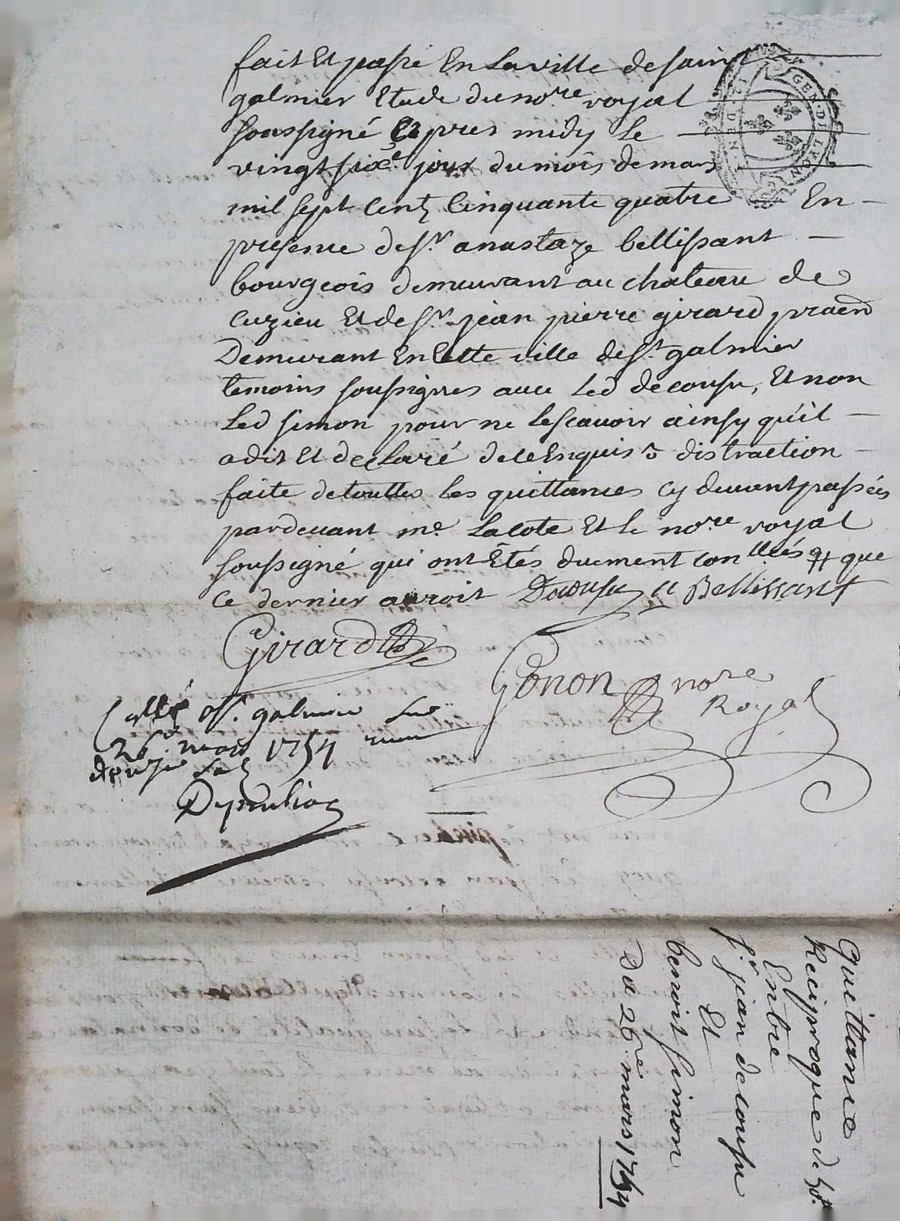 fait Et passé En La ville de Saint
galmier Etude du no.re royal
soussigné Et apres midy Le
vingt sixe. jour du mois de mars
mil sept Cent Cinquante quatre En
presence de Sr. anastaze bellissant
bourgeois demeurant au chateau de
Cuzieu Et de Sr. jean pierre girard praen
Demeurant En Cette ville de St. galmier
temoins soussignes avec Led decousu, Et non
Led Simon pour ne Le scavoir ainsy quil
a dit Et declaré de ce Enquis distraction
faite de touttes Les quittances Cy devant passées
pardevant me. Lacote Et Le nore royal
soussigné qui ont Etés duement conllées que
Ce dernier auroit Decousu a Bellissant
Girard
Gonon nore
Royal
Collé a St. galmier Le
26e. mars 1754
GEN. DE LYON
quittance
Reciproque de
Entre
Sr. jean decousu
Et
benoit Simon
Du 26e mars 1754